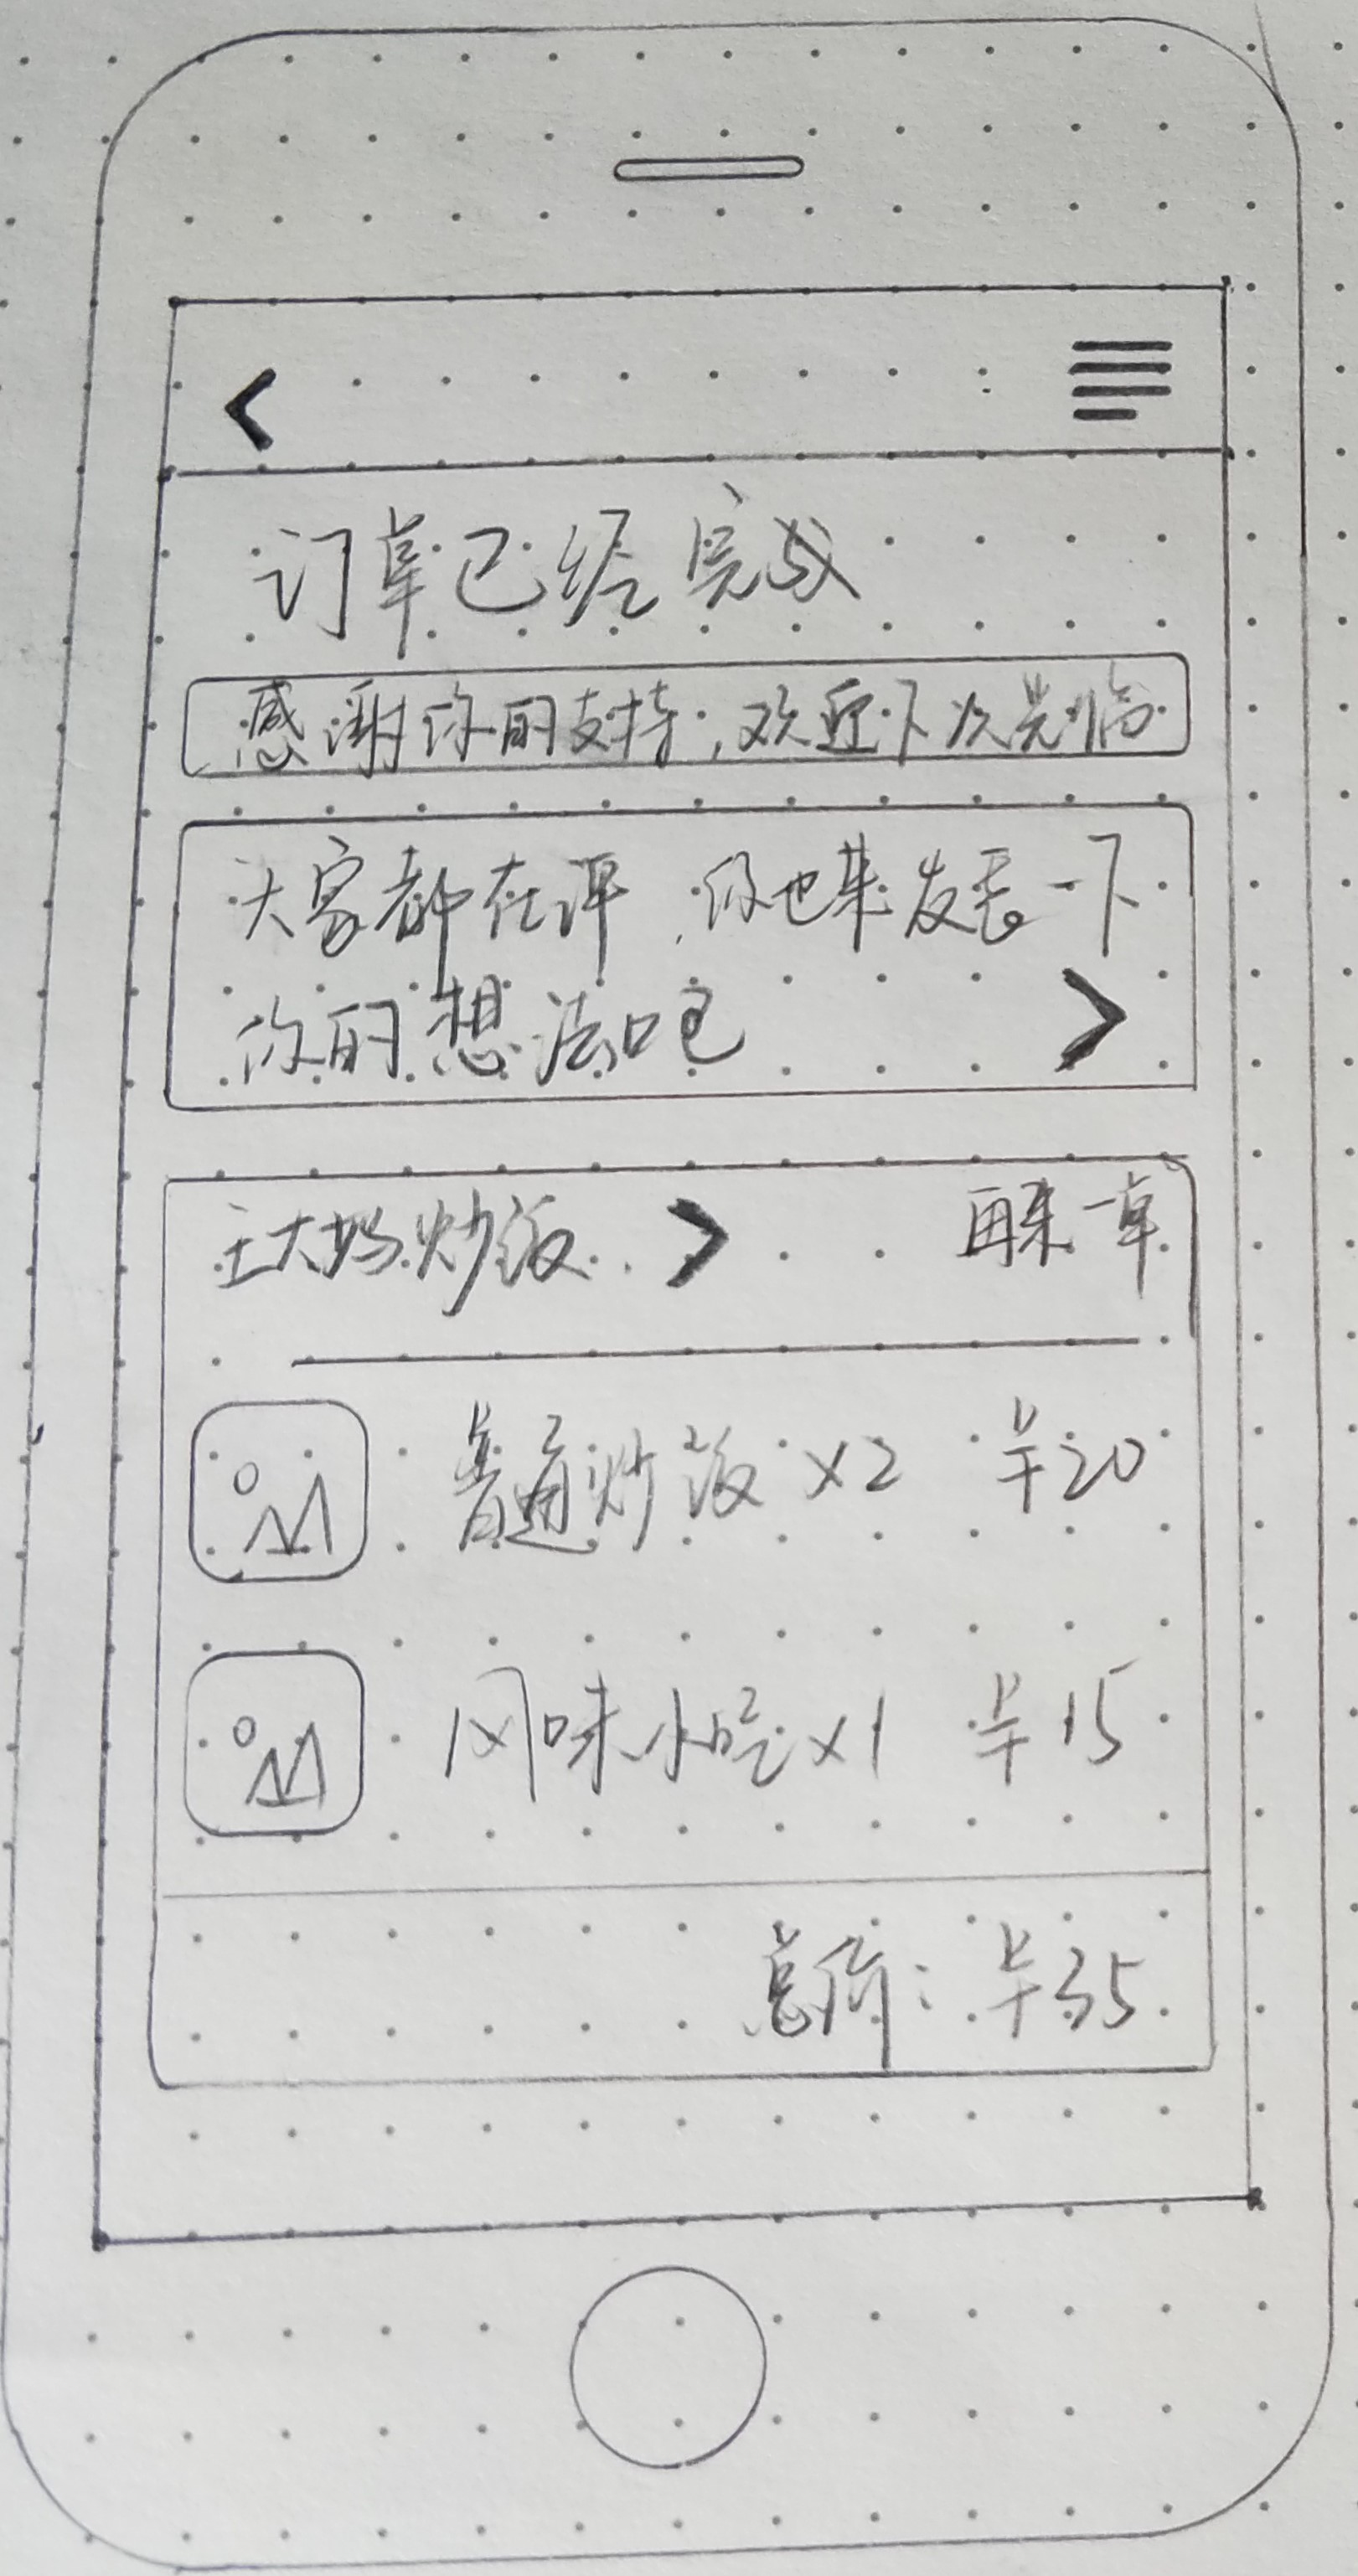 订单已经完成
感谢你的支持,欢迎下次光临
大家都在评,你也来发表一下
你的想法吧
王大妈炒饭 > 再来一单
普通炒饭 x2 ¥20
风味小吃 x1 ¥15
总价: ¥35